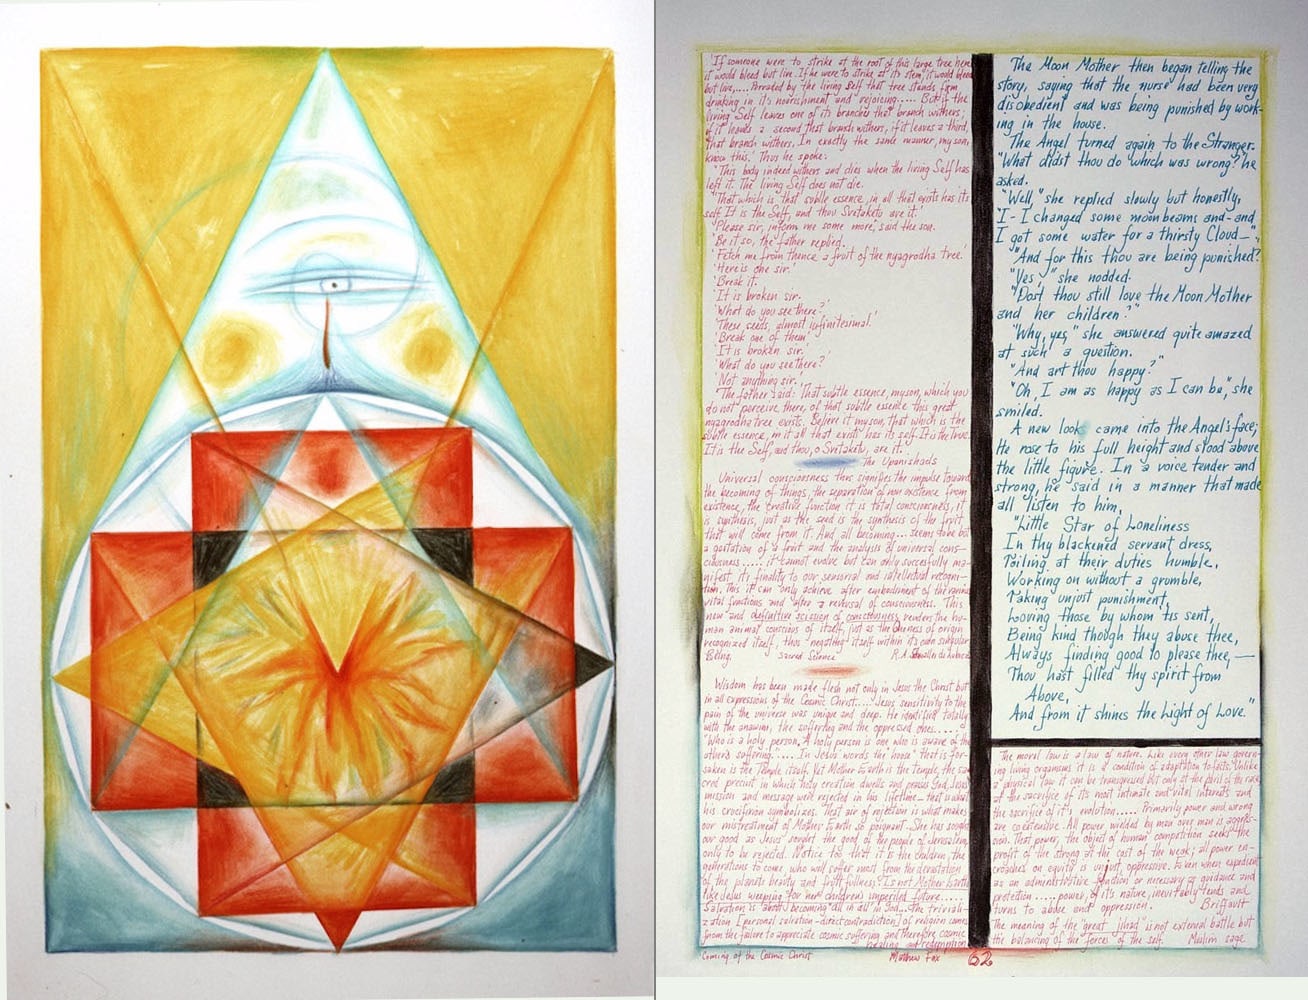 'If someone were to strike at the root of this large tree here
it would bleed but live. If he were to strike at its stem, it would bleed
but live,.... Pervaded by the living Self that tree stands firm
drinking in it's nourishment and rejoicing..... But if the
living Self leaves one of its branches that branch withers;
if it leaves a second that branch withers, if it leaves a third,
that branch withers. In exactly the same manner, my son,
know this.' Thus he spoke:
'This body indeed withers and dies when the living Self has
left it. The living Self does not die.
'That which is that subtle essence, in all that exists has its
self. It is the Self, and thou Svetaketo are it.'
'Please sir, inform me some more,' said the son.
'Be it so,' the father replied.
'Fetch me from thence a fruit of the nyagrodha tree.'
'Here is one sir.'
'Break it.'
'It is broken sir.'
'What do you see there?'
'These seeds, almost infinitesimal.'
'Break one of them'
'It is broken sir.'
'What do you see there?'
'Not anything sir.'
'The father said: 'That subtle essence, my son, which you
do not perceive there, of that subtle essence this great
nyagrodha tree exists. Believe it my son, that which is the
subtle essence, in it all that exists has its self. It is the True.
It is the Self, and thou, o Svetaketo, are it.'
The Upanishads
Universal consciousness thus signifies the impulse toward
the becoming of things, the separation of non existence from
existence, the creative function it is total consciousness, it
is synthesis, just as the seed is the synthesis of the fruit
that will come from it. And all becoming... seems to be but
a quotation of a fruit and the analysis of universal cons-
ciousness..... it cannot evolve but can only succesfully ma-
nifest its finality to our sensorial and intellectual recogni-
tion. This it can only achieve after embodiment of the various
vital functions and after a reversal of consciousness. This
new and definitive scission of consciousness renders the hu-
man animal conscious of itself, just as the Oneness of origin
recognized itself, thus negating itself within its own singular
Being. Sacred Science R.A. Schwaller de Lubicz
Wisdom has been made flesh not only in Jesus the Christ but
in all expressions of the Cosmic Christ..... Jesus sensitivity to the
pain of the universe was unique and deep. He identified totally
with the anawim, the suffering and the oppressed ones.....
'Who is a holy person, A holy person is one who is aware of the
others suffering..... In Jesus words the house that is for-
saken is the temple itself. Yet Mother Earth is the temple, the sa-
cred precinct in which holy creation dwells and praises God. Jesus
mission and message were rejected in his lifetime— that is what
his crucifixion symbolizes. That air of rejection is what makes
our mistreatment of Mother Earth so poignant. She has sought
our good as Jesus sought the good of her people of Jerusalem,
only to be rejected. Notice too that it is the children, the
generations to come, who will suffer most from the devastation
of the planets beauty and fruitfullness. Is not Mother Earth
like Jesus weeping for her children's imperiled future.....
Salvation is about becoming all in all in God....The triviali-
zation [personal salvation - direct contradiction] of religion comes
from the failure to appreciate cosmic suffering and therefore cosmic
healing and redemption
Coming of the Cosmic Christ Matthew Fox
The Moon Mother then began telling the
story, saying that the nurse had been very
disobedient and was being punished by work-
ing in the house.
The Angel turned again to the Stranger.
"What didst thou do which was wrong?" he
asked.
"Well," she replied slowly but honestly,
"I-I changed some moonbeams and-and
I got some water for a thirsty Cloud—",
"And for this thou are being punished?"
"Yes", she nodded.
"Dost thou still love the Moon Mother
and her children?"
"Why, yes," she answered quite amazed
at such a question.
"And art thou happy?"
"Oh, I am as happy as I can be," she
smiled.
A new look came into the Angel's face;
He rose to his full height and stood above
the little figure. In a voice tender and
strong, he said in a manner that made
all listen to him,
"Little Star of Loneliness
In thy blackened servant dress,
Toiling at their duties humble,
Working on without a grumble,
Taking unjust punishment,
Loving those by whom 'tis sent,
Being kind though they abuse thee,
Always finding good to please thee,—
Thou hast filled thy spirit from
Above,
And from it shines the Light of Love."
The moral law is a law of nature. Like every other law govern-
ing living organisms it is a condition of adaptation to facts. Unlike
a physical law it can be transgressed but only at the peril of the race,
at the sacrifice of its most intimate and vital interests and
the sacrifice of it's evolution..... Primarily power and wrong
are coextensive. All power wielded by man over man is aggres-
sion. That power, the object of human competition seeks the
profit of the strong at the cost of the weak; all power en-
croaches on equity is unjust, oppressive. Even when expedient
as an administrative function or necessary as guidance and
protection..... power, of it's nature, inevitably tends and
turns to abuse and oppression. Briffault
The meaning of the great 'jihad' is not external battle but
the balancing of the forces of the self. Muslim sage
62